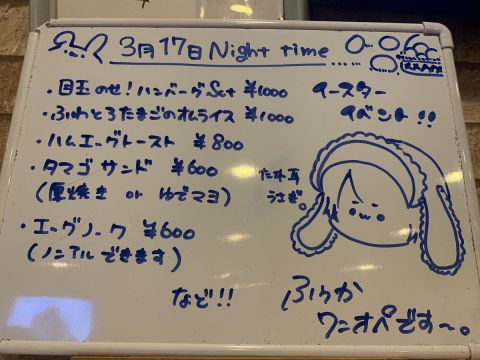 3月17日 Night time
・目玉のせ!ハンバーグSet ¥1000
・ふわとろたまごのオムライス ¥1000
・ハムエーグトースト ¥800
・タマゴサンド ¥600
(厚焼き or ゆでマヨ)
・エーグノーク ¥600
(ノンアルできます)
など!!
イースター
イベント!!
たれ耳
うさぎ。
ふわか
ワンオペです〜。